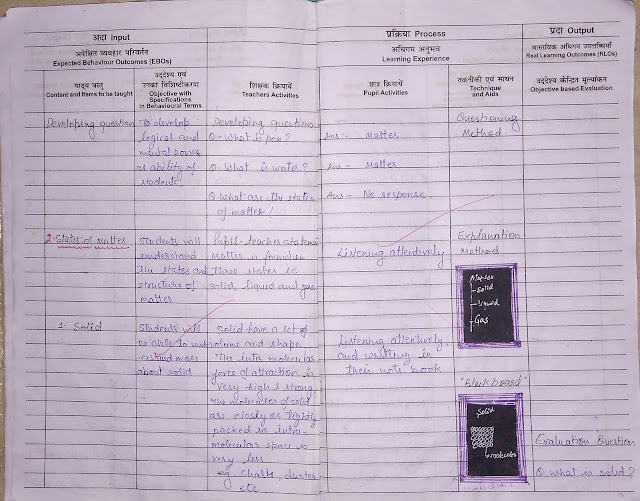 अदा Input
प्रक्रिया Process
प्रदा Output
अपेक्षित व्यवहार परिवर्तन
Expected Behaviour Outcomes (EBOs)
अधिगम अनुभव
Learning Experience
वास्तविक अधिगम उपलब्धियाँ
Real Learning Outcomes (RLOs)
पाठ्य वस्तु
Content and Items to be taught
उद्देश्य एवं
उनका विशिष्टीकरण
Objective with
Specifications
in Behavioural Terms
शिक्षक क्रियायें
Teachers Activities
छात्र क्रियायें
Pupil Activities
तकनीकी एवं साधन
Technique
and Aids
उद्देश्य केन्द्रित मूल्यांकन
Objective based Evaluation
Developing question
To develop
logical and
mental power
or ability of
students.
Developing question
Q- What is pen?
Q- What is water?
Q- What are the state
of matter?
Ans:- Matter
Ans - Matter
Ans - No response.
Questioning
Method
2- States of Matter
Students will
understand
the states and
structure of
matter
Pupil-teacher statement
Matter is found in
three states i.e
solid, liquid and gas
Listening attentively
Explanation
Method
Matter
Solid
Liquid
Gas
1- Solid
Students will
be able to und
erstand more
about solid
Solid have a set of
volume and shape.
The inter molecular
force of attraction is
very high & strong
The molecules of solid
are closly or tightly
packed so intra-
molecular space is
very less
eg Chalk, duster
etc
Listening attentively
and writting in
their note book
"Black board"
Solid
molecules
Evaluation Question
Q what is solid?